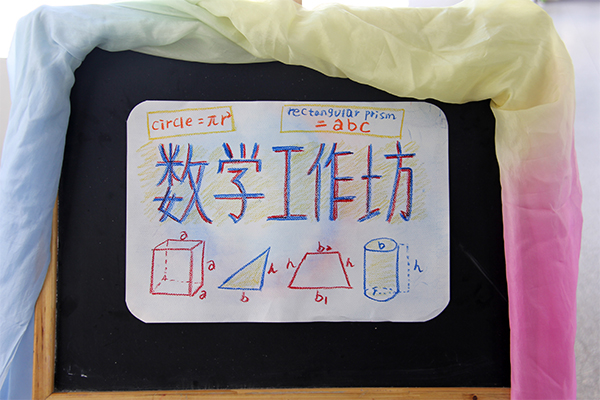 circle = πr²
rectangular prism
= abc
数学工作坊
a
a
a
h
b
b₂
h
h
b₁
b
h
r